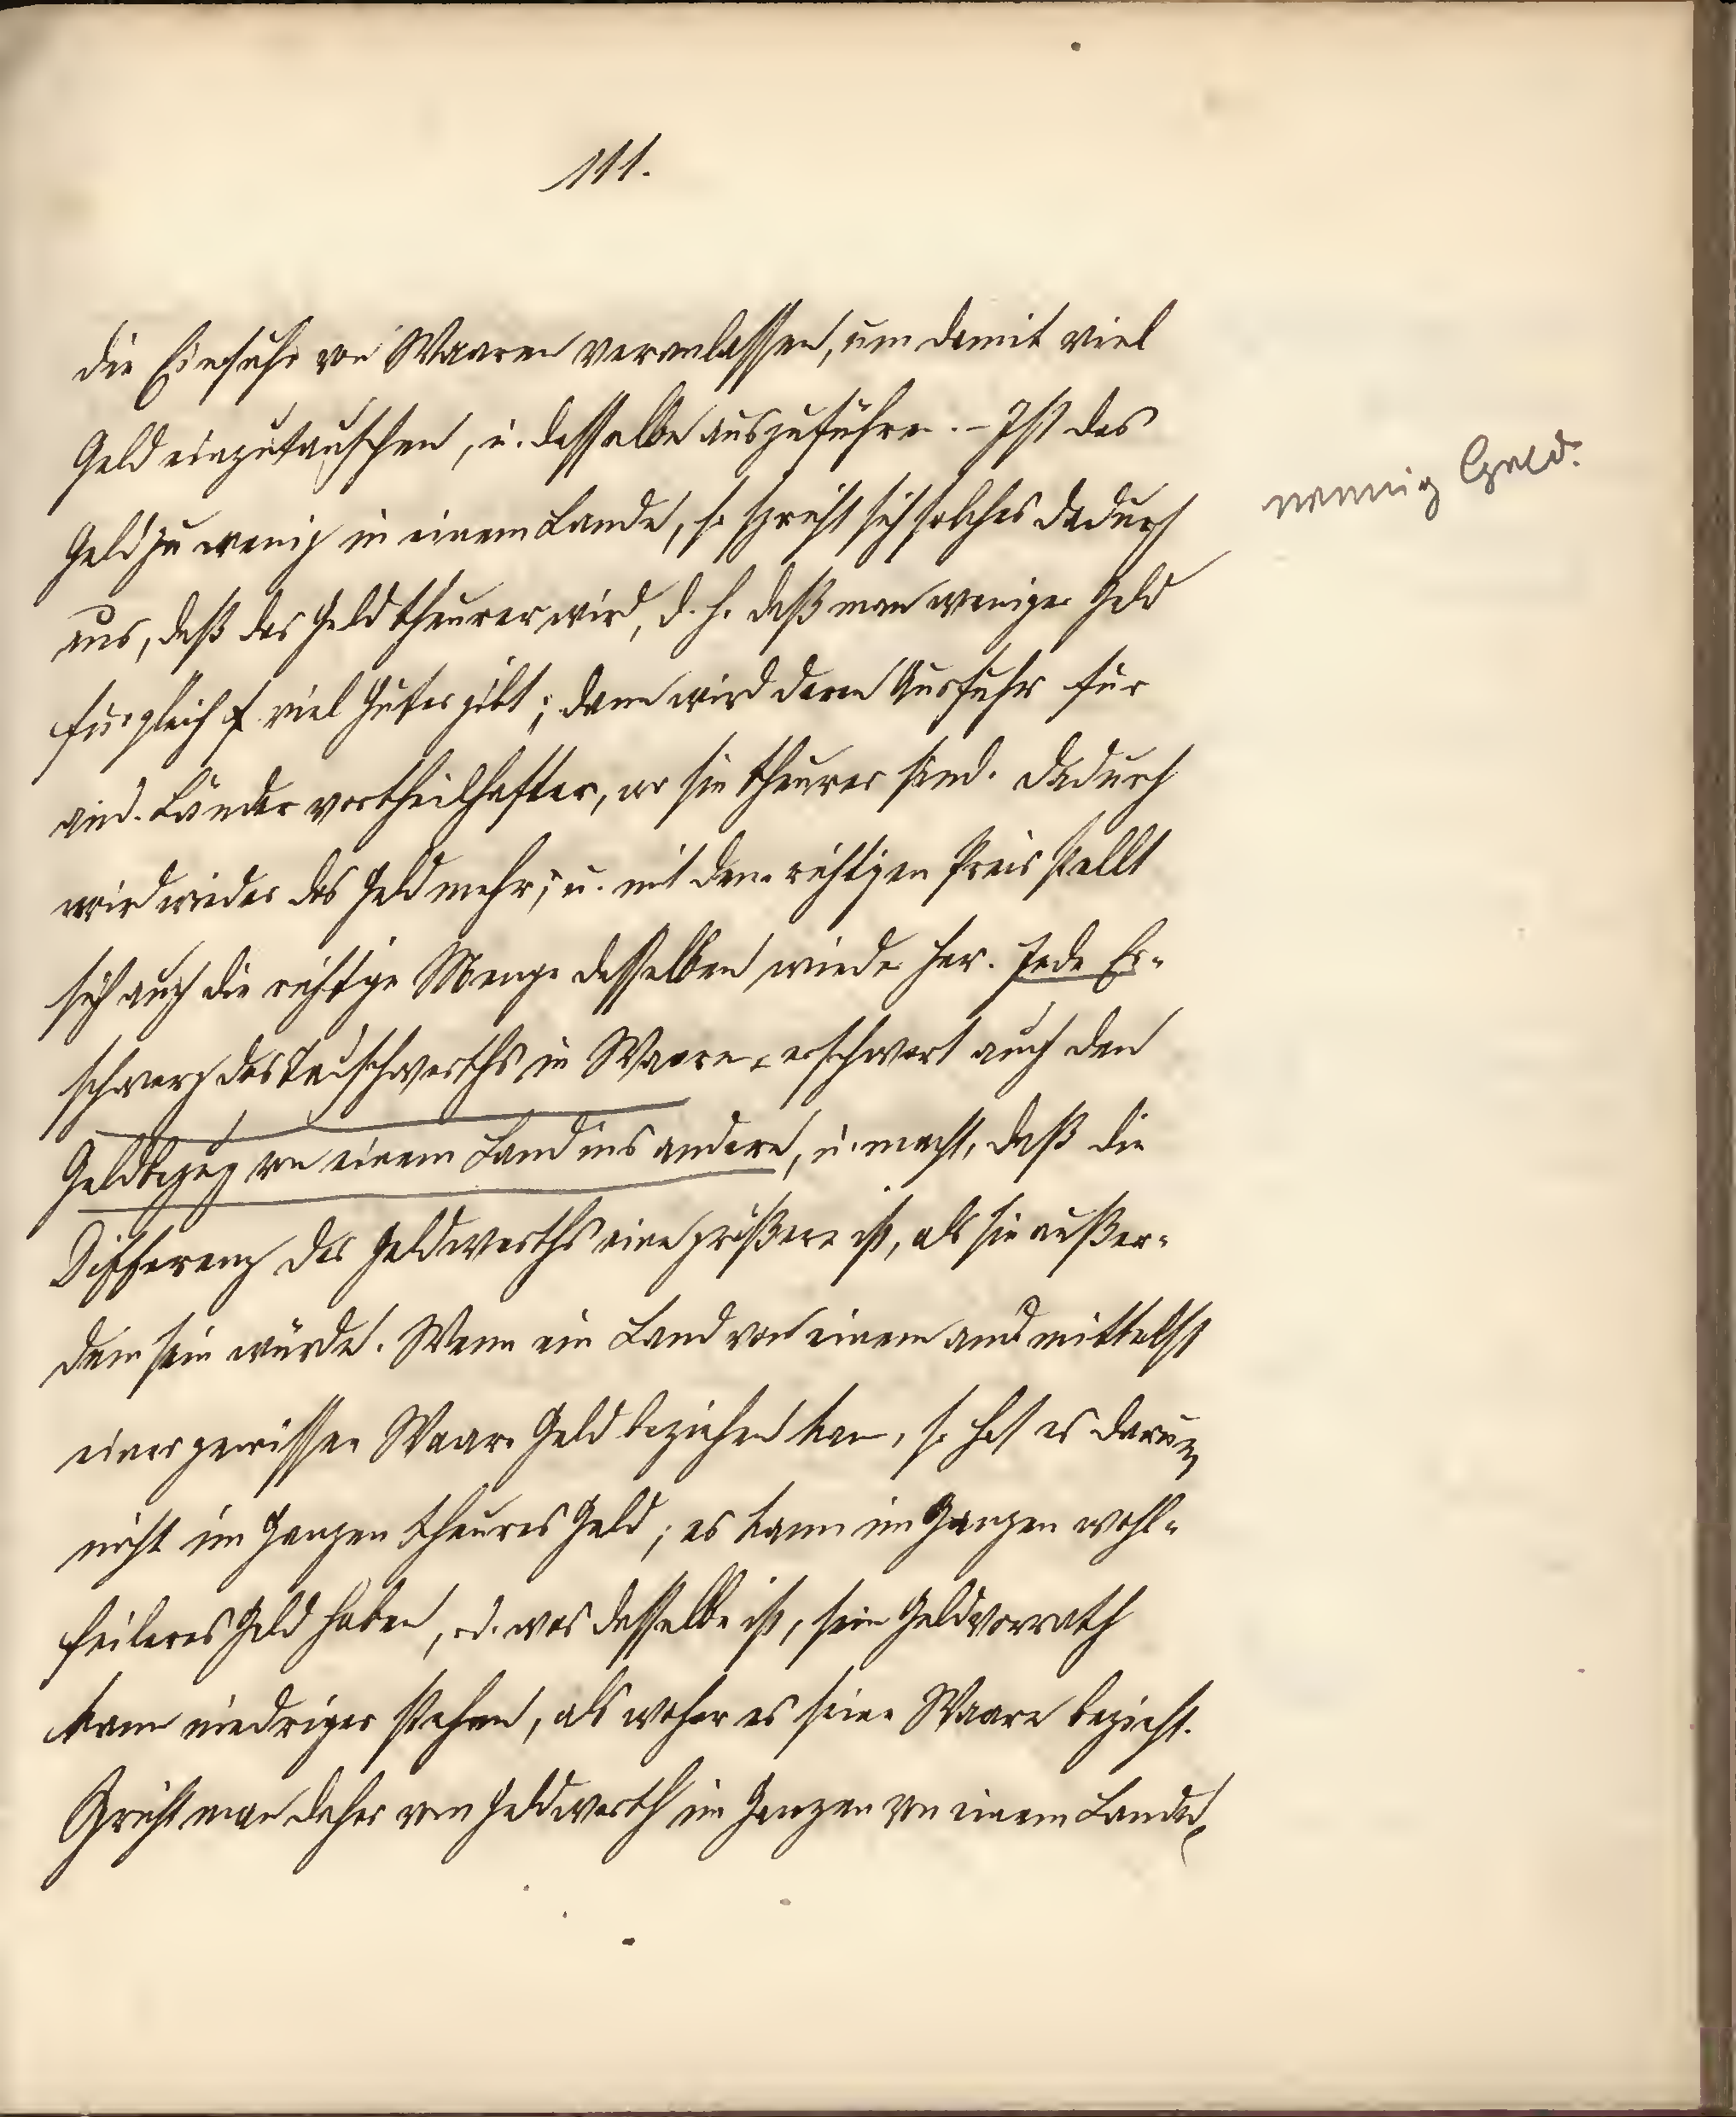 111.
die Einfuhr von Waaren veranlassen, um damit viel
Geld einzutauschen, u. dasselbe auszuführen. - Ist das
Geld zu wenig in einem Lande, so spricht sich solches dadurch
wenig Geld.
aus, daß das Geld theurer wird, d. h. daß man weniger Geld
für gleich viel Güter gibt; dann wird deren Ausfuhr für
and. Länder vortheilhafter, wo sie theurer sind. Dadurch
wird wieder das Geld mehr; u. mit dem richtigen Preis stellt
sich auch die richtige Menge desselben wieder her. Jede Er-
schwerg des Tauschwerths in Waaren erschwert auch den
Geldbezug von einem Land ins andere, u. macht, daß die
Differenz des Geldwerths eine größere ist, als sie außer-
dem sein würde. Wenn ein Land von einem and mittelst
einer gewissen Waare Geld beziehen kan, so hat es darum
nicht im Ganzen theures Geld; es kann im Ganzen wohl-
feileres Geld haben, od. was dasselbe ist, sein Geldvorrath
kann niedriger stehen, als woher es seine Waare bezieht.
Spricht man daher vom Geldwerth im Ganzen von einem Lande,